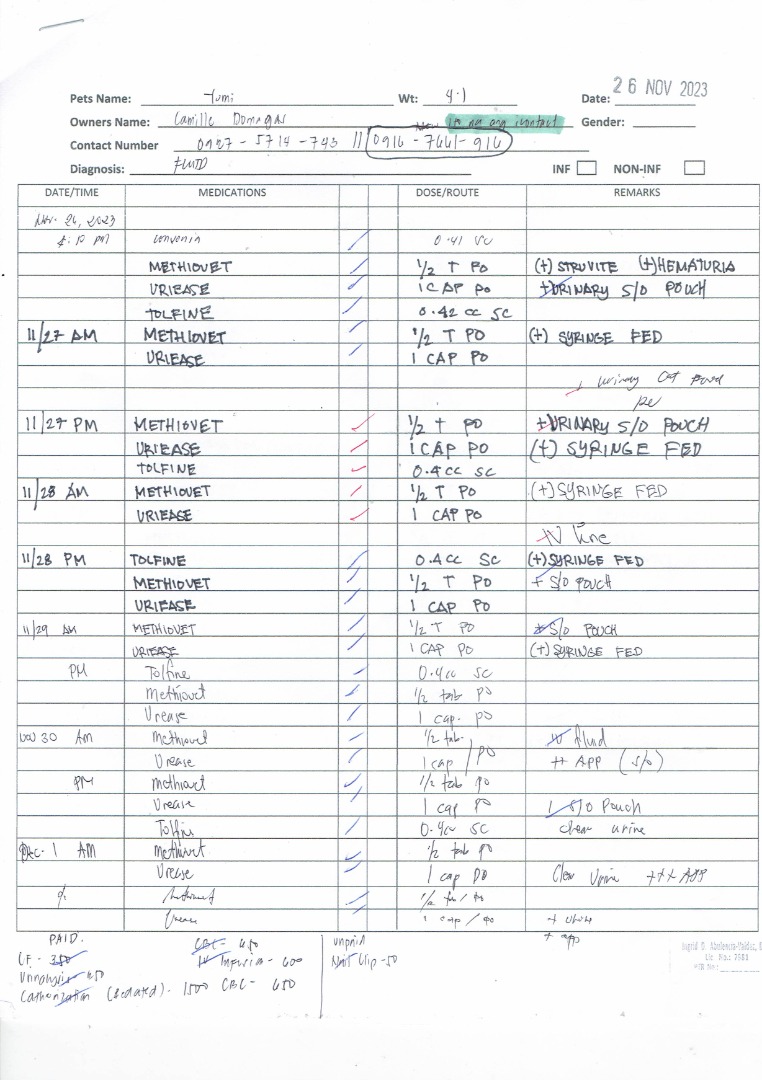 26 NOV 2023
Pets Name: Yumi Wt: 4.1 Date:
Owners Name: Camille Domagas ito na ang contact Gender:
Contact Number 0927-5714-743 // 0916-7661-916
Diagnosis: FLUTD INF NON-INF
DATE/TIME MEDICATIONS DOSE/ROUTE REMARKS
Nov. 26, 2023
PM Convenia 0.41 SC
METHIOVET 1/2 T PO (+) STRUVITE (+) HEMATURIA
URIEASE 1 CAP PO + URINARY S/O POUCH
TOLFINE 0.42 CC SC
11/27 AM METHIOVET 1/2 T PO (+) SYRINGE FED
URIEASE 1 CAP PO
urinary Cat Food
11/27 PM METHIOVET 1/2 T PO + URINARY S/O POUCH
URIEASE 1 CAP PO (+) SYRINGE FED
TOLFINE 0.4 CC SC
11/28 AM METHIOVET 1/2 T PO (+) SYRINGE FED
URIEASE 1 CAP PO
IV line
11/28 PM TOLFINE 0.4 CC SC (+) SYRINGE FED
METHIOVET 1/2 T PO + S/O POUCH
URIEASE 1 CAP PO
11/29 AM METHIOVET 1/2 T PO + S/O POUCH
URIEASE 1 CAP PO (+) SYRINGE FED
PM Tolfine 0.4cc SC
Methiovet 1/2 tab PO
Urease 1 cap. PO
Nov 30 Am Methiovet 1/2 tab. IV fluid
Urease 1 cap / PO ++ APP (S/O)
PM Methiovet 1/2 tab PO
Urease 1 cap PO 1 S/O Pouch
Tolfine 0.4cc SC clear urine
Dec. 1 AM Methiovet 1/2 tab PO
Urease 1 cap PO Clear Urine +++ APP
Methiovet 1/2 tab / PO
Urease 1 cap / PO + urine
+ app
PAID.
CF - 350
Urinalysis 450
Catherization (Sedated) - 1500
CBC - 650
IV Infusion - 600
CBC - 650
unpaid
Nail Clip - 50
Lic. No.: 7584
PTR No.: